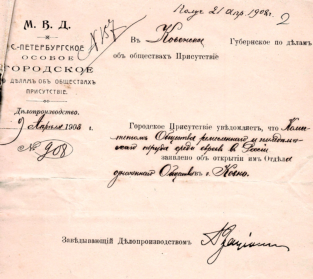 21 Апр. 1908 г.
2
М. В. Д.
С.-ПЕТЕРБУРГСКОЕ
ОСОБОЕ
ГОРОДСКОЕ
ПО ДѢЛАМ ОБЪ ОБЩЕСТВАХЪ
ПРИСУТСТВІЕ.
Дѣлопроизводство.
9 Апрѣля 1908 г.
№ 908
№ 157
Въ Ковенское Губернское по дѣламъ
объ обществахъ Присутствіе
Городское Присутствіе увѣдомляетъ, что Коми-
тетомъ Общества ремесленнаго и
труда среди евреевъ въ Россіи
заявлено объ открытіи имъ Отдѣла
Общества въ г. Ковно.
Завѣдывающій Дѣлопроизводствомъ